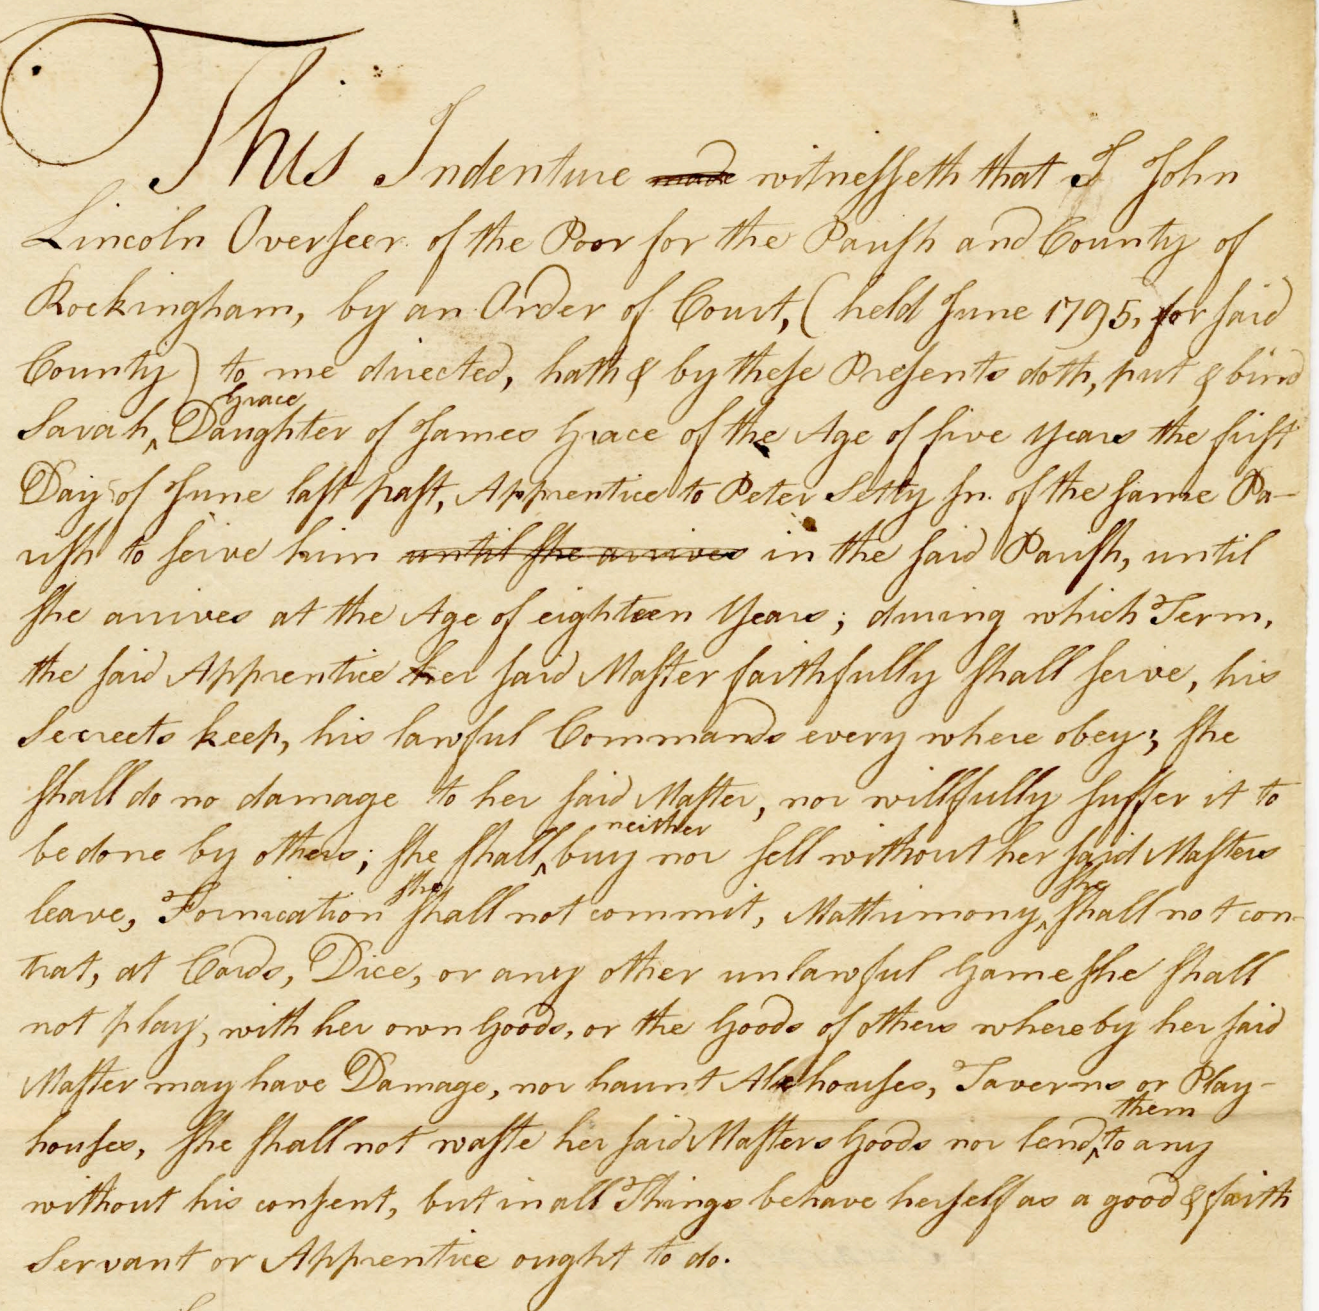 This Indenture made witnesseth that I John
Lincoln Overseer of the Poor for the Parish and County of
Rockingham, by an Order of Court, (held June 1795, for said
County) to me directed, hath & by these Presents doth, put & bind
Grace
Sarah ^ Daughter of James Grace of the Age of five Years the first
Day of June last past, Apprentice to Peter Setty Jn. of the same Pa-
rish to serve him until she arrives in the said Parish, until
she arrives at the Age of eighteen Years; during which Term,
the said Apprentice her said Master faithfully shall serve, his
Secreets keep, his lawful Commands every where obey; she
shall do no damage to her said Master, nor willfully suffer it to
neither
be done by others; she shall ^ buy nor sell without her said Masters
she she
leave, Fornication shall not commit, Mattrimony ^ shall not con-
trat, at Cards, Dice, or any other unlawful Game she shall
not play, with her own Goods, or the Goods of others whereby her said
Master may have Damage, nor haunt Alehouses, Taverns or Play-
them
houses, she shall not waste her said Masters Goods nor lend ^ to any
without his consent, but in all Things behave herself as a good & faith
Servant or Apprentice ought to do.